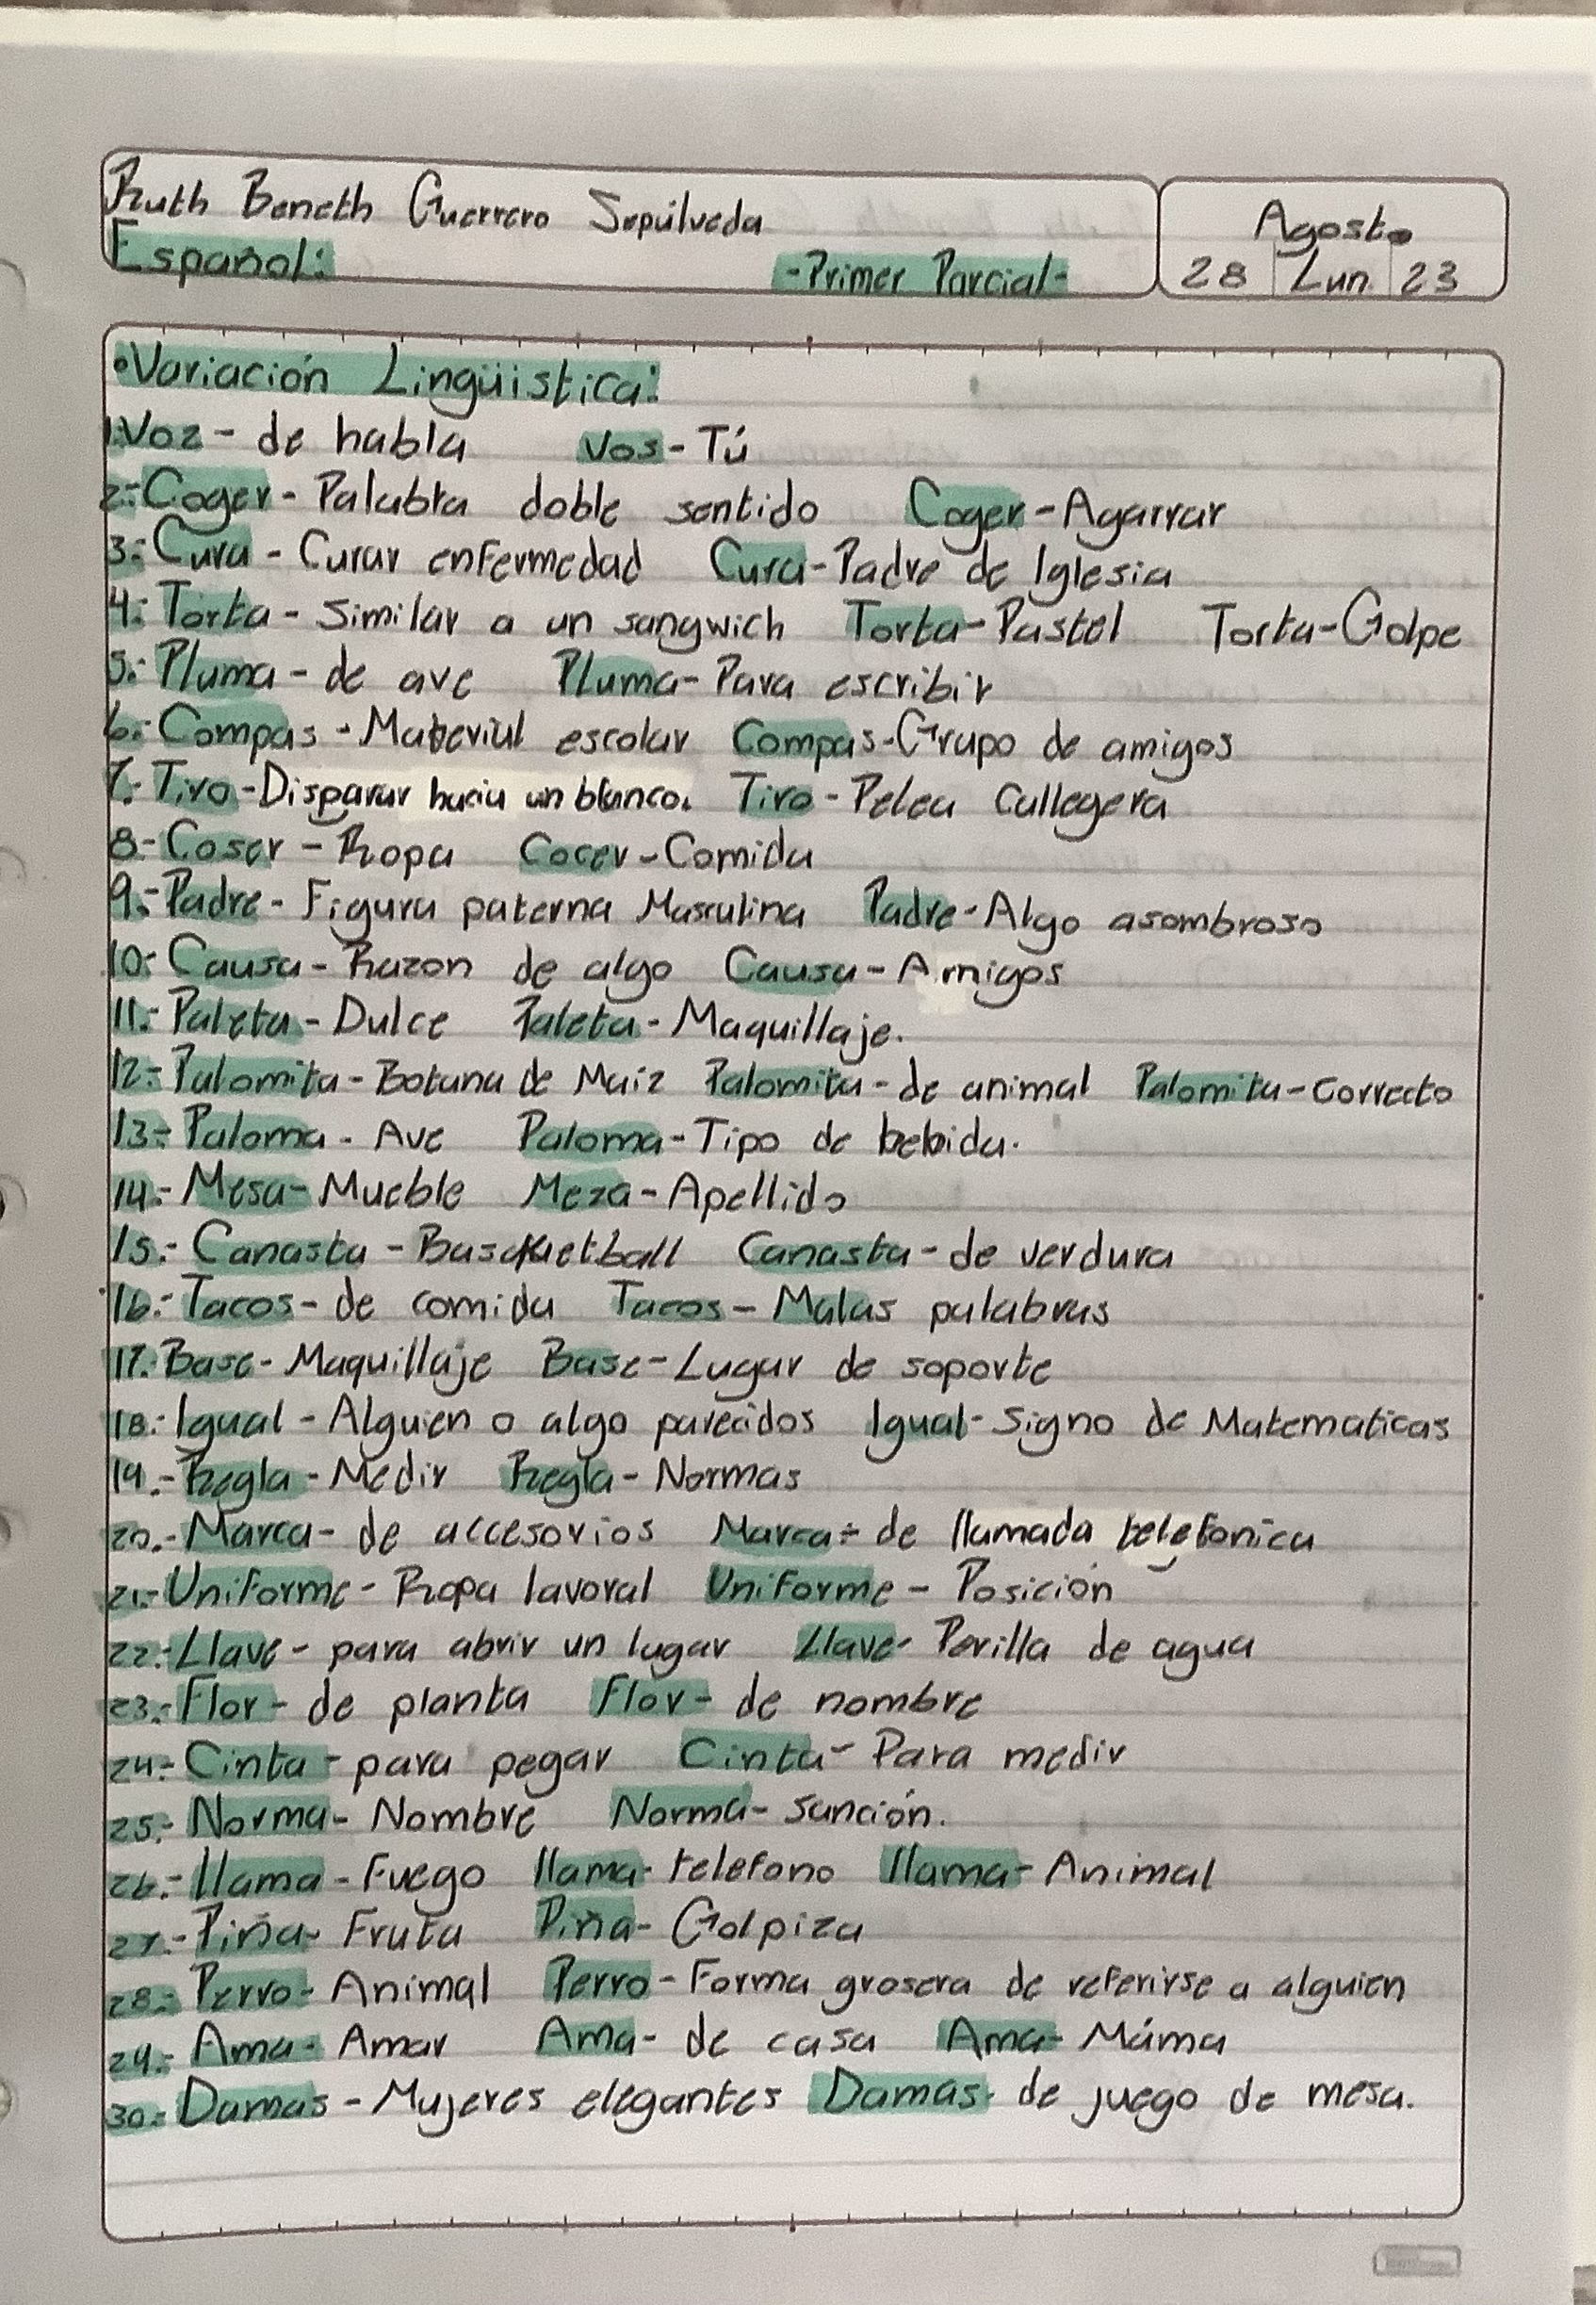 Ruth Beneth Guerrero Sepúlveda
Español:
-Primer Parcial-
Agosto
28 Lun 23
•Variación Lingüistica:
1.Voz - de habla Vos - Tú
2.-Coger - Palabta doble sentido Coger - Agarrar
3.-Cura - Curar enfermedad Cura - Padre de Iglesia
4.- Torta - Similar a un sangwich Torta - Pastel Torta - Golpe
5.- Pluma - de ave Pluma - Para escribir
6.- Compas - Material escolar Compas - Grupo de amigos
7.- Tiro - Disparar hacia un blanco. Tiro - Pelea Callegera
8.- Coser - Ropa Cocer - Comida
9.- Padre - Figura paterna Masculina Padre - Algo asombroso
10.- Causa - Razon de algo Causa - Amigos
11.- Paleta - Dulce Paleta - Maquillaje.
12.- Palomita - Botana de Maíz Palomita - de animal Palomita - correcto
13.- Paloma - Ave Paloma - Tipo de bebida.
14.- Mesa - Mueble Meza - Apellido
15.- Canasta - Canasta - de verdura
16.- Tacos - de comida Tacos - Malas palabras
17.- Base - Maquillaje Base - Lugar de soporte
18.- Igual - Alguien o algo parecidos Igual - Signo de Matematicas
19.- Regla - Medir Regla - Normas
20.- Marca - de accesorios Marca - de llamada telefonica
21.- Uniforme - Ropa lavoral Uniforme - Posición
22.- Llave - para abrir un lugar Llave - Perilla de agua
23.- Flor - de planta Flor - de nombre
24.- Cinta - para pegar Cinta - Para medir
25.- Norma - Nombre Norma - Sanción.
26.- llama - Fuego llama - telefono llama - Animal
27.- Piña - Fruta Piña - Golpiza
28.- Perro - Animal Perro - Forma grosera de referirse a alguien
29.- Ama - Amar Ama - de casa Ama - Máma
30.- Damas - Mujeres elegantes Damas - de juego de mesa.